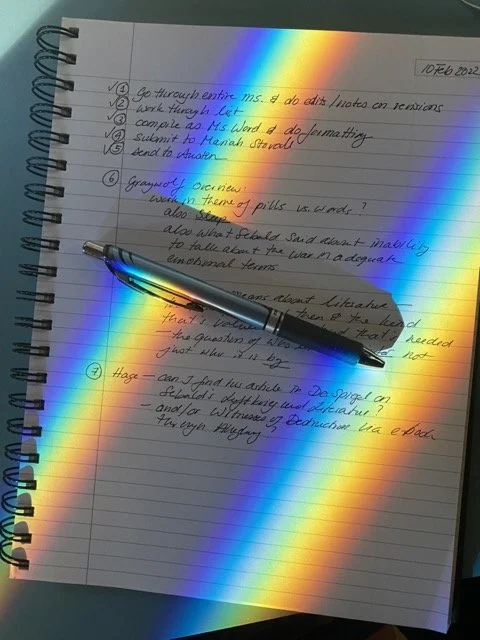 10 Feb 2022
✓① go through entire ms. & do edits/notes on revisions
✓② work through list
✓③ compile as Ms. Word & do formatting
✓④ submit to Mariah Stovall
✓⑤ send to Austen
⑥ Graywolf overview:
work in theme of pills vs. words?
also Sleep
also what Sebald said about inability
to talk about the war in adequate
emotional terms
means about literature —
then & the kind
that's that's needed
the question of who not
just why it is by
⑦ Hage — can I find his article in De Spigel on
Sebald's and literature?
— and/or Witnesses of Destruction via ebook
through